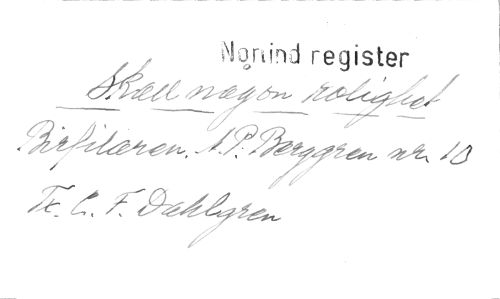 Nonind register
Skall nagon rolighet
Birfilaren. A. P. Berggren nr. 10
Tx. C. F. Dahlgren